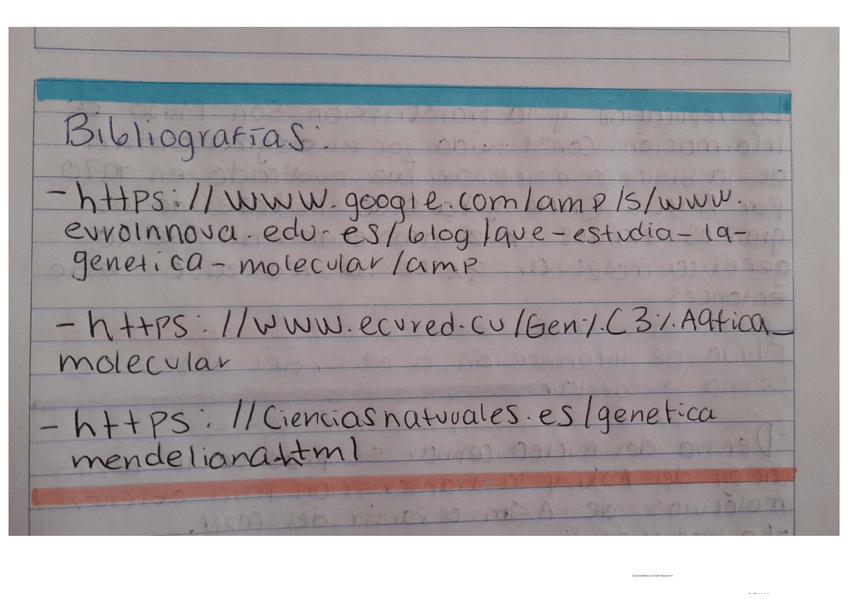 Bibliografías:
- https://www.google.com/amp/s/www.
euroinnova.edu.es/blog/que-estudia-la-
genetica-molecular/amp
- https://www.ecured.cu/Gen%C3%A9tica_
molecular
- https://Cienciasnaturales.es/genetica
mendeliana.html